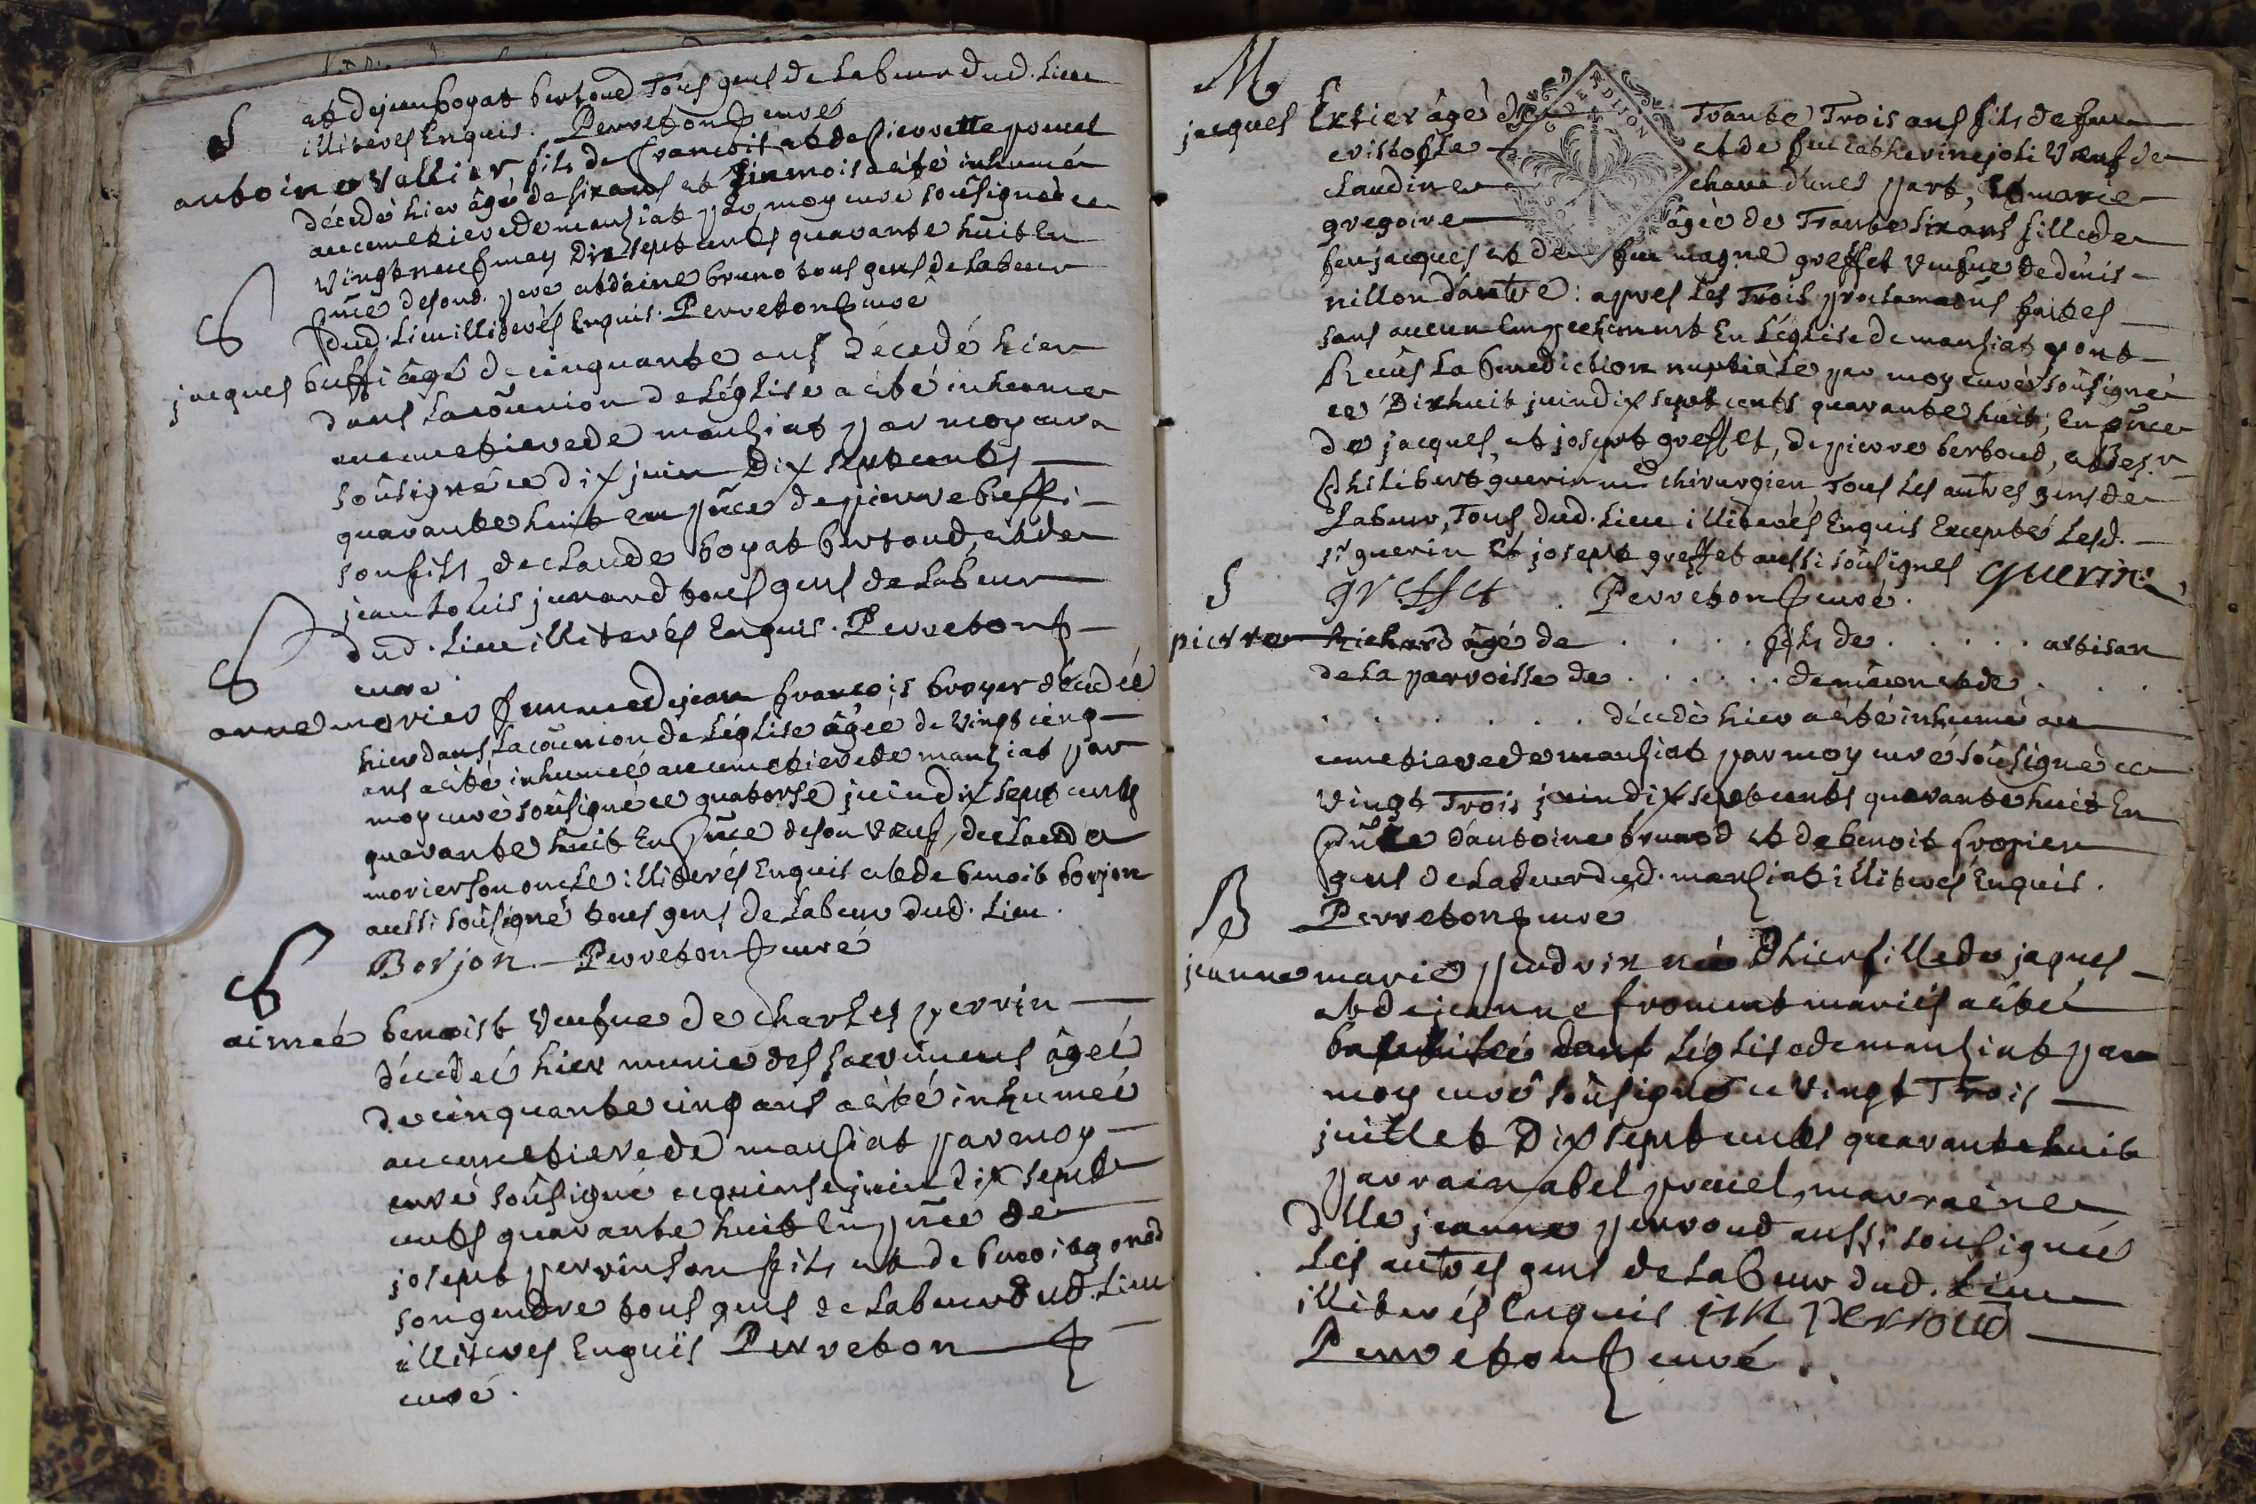 et de jean boyat bertoud Tous gens de Labeur dud. Lieu
illiterés Enquis. Perreton curé
S
antoine Vallier, fils de francois et de pierrette pruel
décedé hier âgé de six ans et six mois a été inhumé
au cemetiere de manziat par moy curé soûsigné ce
vingt neuf may Dix sept cents quarante huit En
pñce de soud. pere et daimé bruno tous gens de Labeur
dud. Lieu illiterés Enquis. Perreton curé
S
jacques buffi âgé de cinquante ans décedé hier
dans La coûnion de L'église a été inhumé
au cemetiere de manziat par moy curé
soûsigné ce dix juin Dix sept cents
quarante huit en pñce de pierre buffi
son fils, de claude boyat bertoud, et de
jean Louis junand tous gens de Labeur
dud. Lieu illiterés Enquis. Perreton
curé.
S
anne morier femme de jean francois broyer décedée
hier dans La coûnion de L'église âgée de vingt cinq
ans a été inhumée au cemetiere de manziat par
moy curé soûsigné ce quatorse juin dix sept cents
quarante huit En pñce de son veuf, de claude
morier son oncle illiterés Enquis et de benoit borjon
aussi soûsigné tous gens de Labeur dud. Lieu.
Borjon. Perreton curé
S
aimeé benoist veufue de charles perrin
décedeé hier munie des sacremens âgeé
de cinquante cinq ans a été inhumeé
au cemetiere de manziat par moy
curé soûsigné ce quinse juin dix sept
cents quarante huit En pñce de
josept perrin son fils et de benoit gonod
son gendre tous gens de Labeur dud. Lieu
illiterés Enquis Perreton
curé.
M
jacques Extier âgé de Trante Trois ans fils de feu
cristofle et de feu catherine joli veuf de
claudine chané d'une part, Et marie
gregoire âgée de Trante six ans fille de
feu jacques et de feu magne greffet veufue de denis
nillon d'autre : apres Les Trois proclamatñs faites
sans aucun Empechement En L'église de manziat y ont
Reçûs La benediction nuptiale par moy curé soûsigné
ce Dixhuit juin dix sept cents quarante huit, En pñce
de jacques, et josept greffet, de pierre bertoud, et de sr.
philibert guerin md chirurgien, Tous Les autres gens de
Labeur, Tous dud. Lieu illiterés Enquis Exceptés Lesd.
sr guerin Et josept greffet aussi soûsignes guerin
greffet. Perreton curé.
S
pierre Richard âgé de . . . . fils de . . . . . artisan
de La parroisse de . . . . . . de mâcon et de . . .
. . . . . . . décedé hier a été inhumé au
cemetiere de manziat par moy curé soûsigné ce
vingt Trois juin dix sept cents quarante huit En
pñce d'antoine brunod et de benoit
gens de Labeur dud. manziat illiterés Enquis.
Perreton curé
B
jeanne marie pendrix née D'hier fille de jaques
et de jeanne froment mariés a été
baptiseé dans L'église de manziat par
moy curé soûsigné ce vingt Trois
juillet Dix sept cents quarante huit
parrain abel pruel, marraine
Dlle jeanne perroud aussi sousigneé
Les autres gens de Labeur dud. Lieu
illiterés Enquis perroud
Perreton curé.